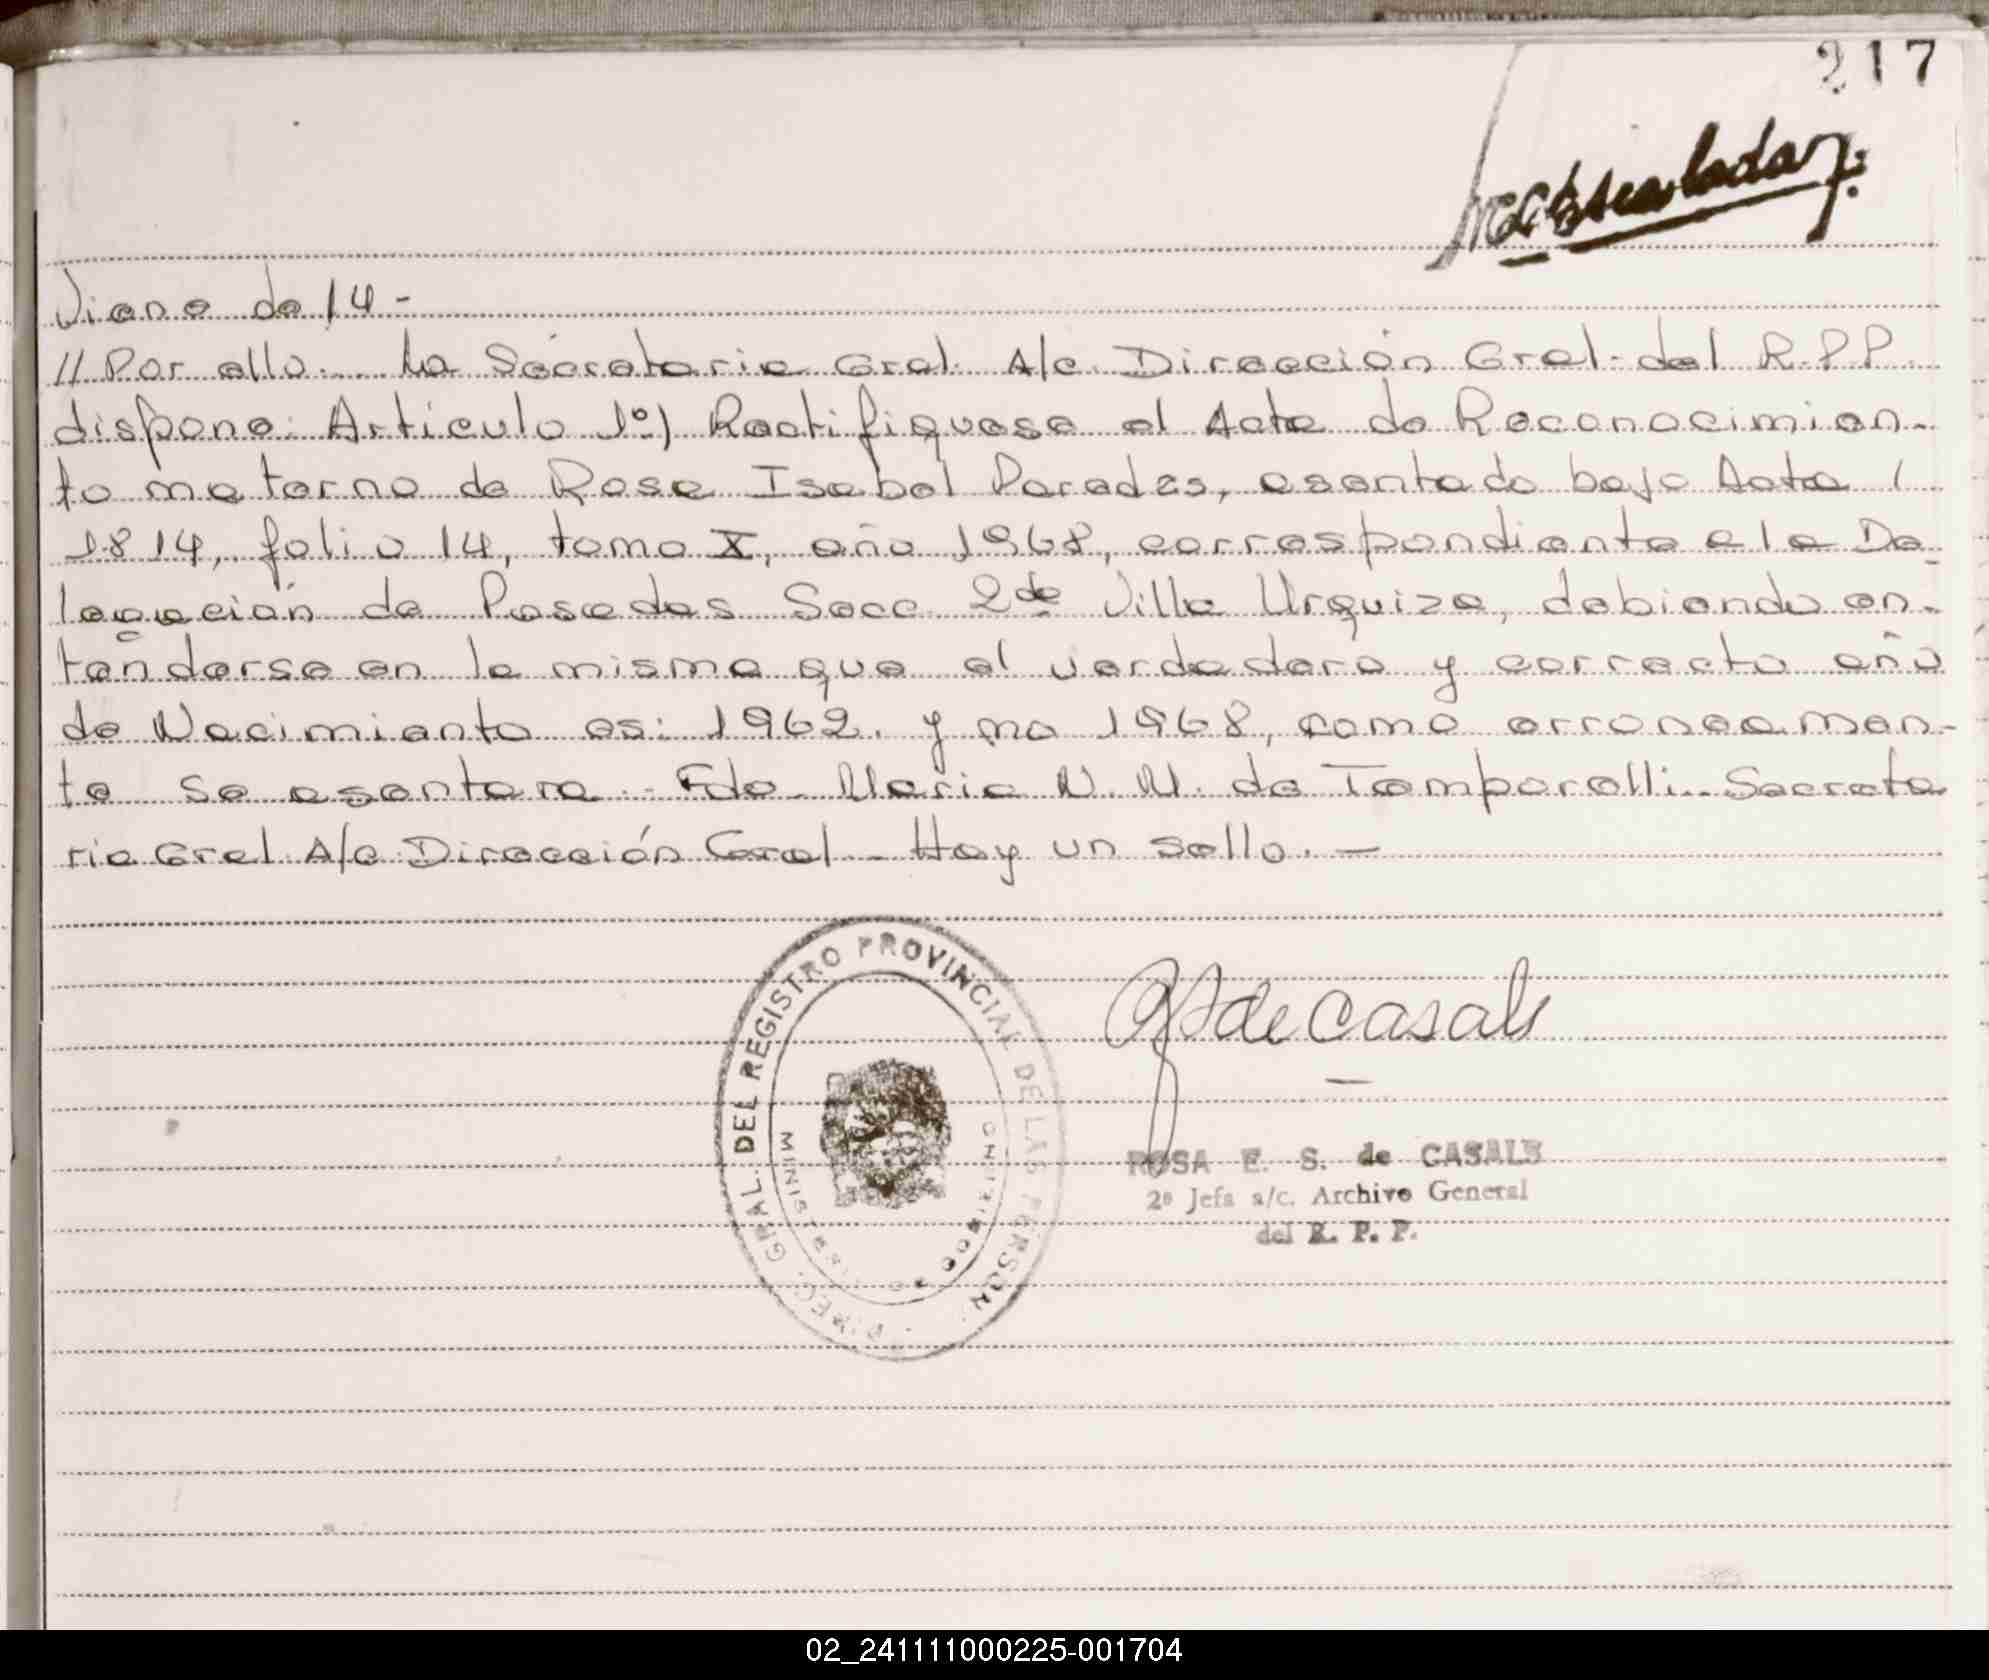 217
Viene de 14 -
// Por ello. La Secretaria Gral. A/c. Dirección Gral. del R.P.P.
dispone: Artículo 1º) Rectifiquese el Acta de Reconocimien-
to materno de Rosa Isabel Paredes, asentado bajo Acta /
1814, folio 14, tomo X, año 1968, correspondiente a la De
legación de Posadas Secc. 2da Villa Urquiza, debiendo en-
tenderse en la misma que el verdadero y correcto año
de Nacimiento es: 1962. y no 1968, como erroneamen-
te se asentara. Fdo. Maria N. M. de Temporelli. Secreta
ria Gral A/c Dirección Gral. Hay un sello. -
DIREC. GRAL. DEL REGISTRO PROVINCIAL DE LAS PERSON.
de Casals
ROSA E. S. de CASALS
2º Jefa a/c. Archivo General
del R. P. P.
02_241111000225-001704